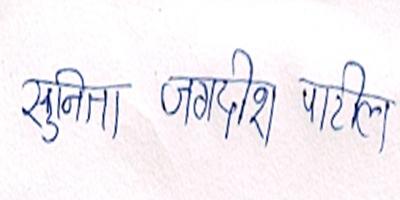 सुनिता जगदीश पाटील